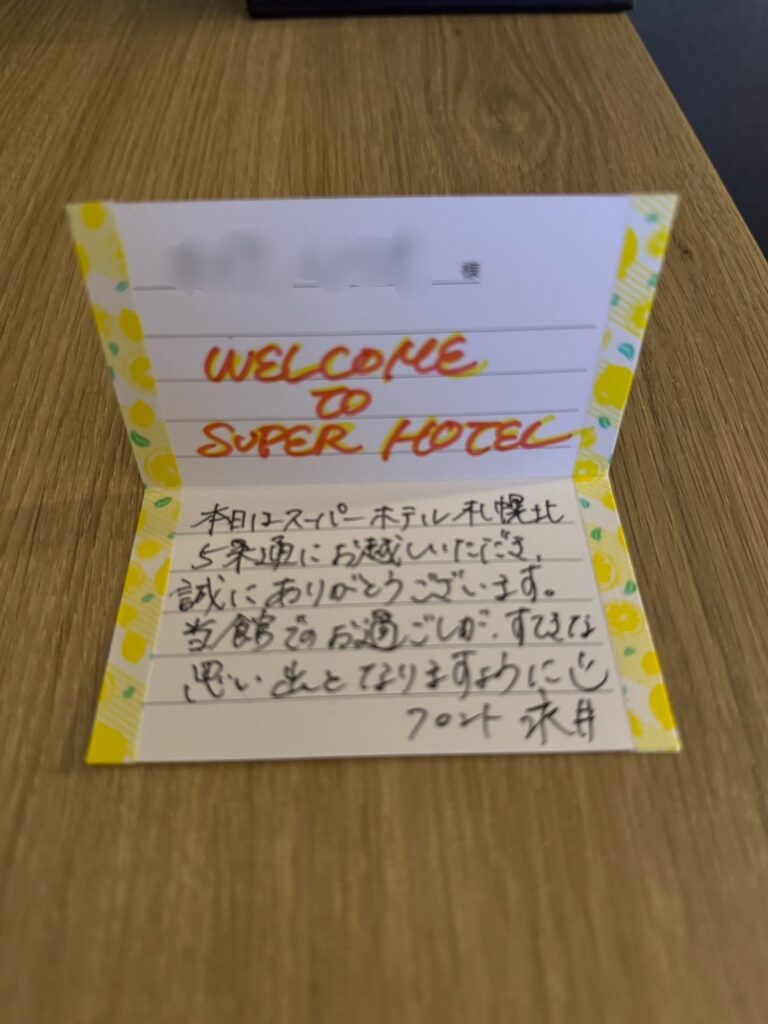 様
WELCOME
TO
SUPER HOTEL
本日はスーパーホテル札幌北
5条通にお越しいただき、
誠にありがとうございます。
当館でのお過ごしが、すてきな
思い出となりますように
フロント 永井